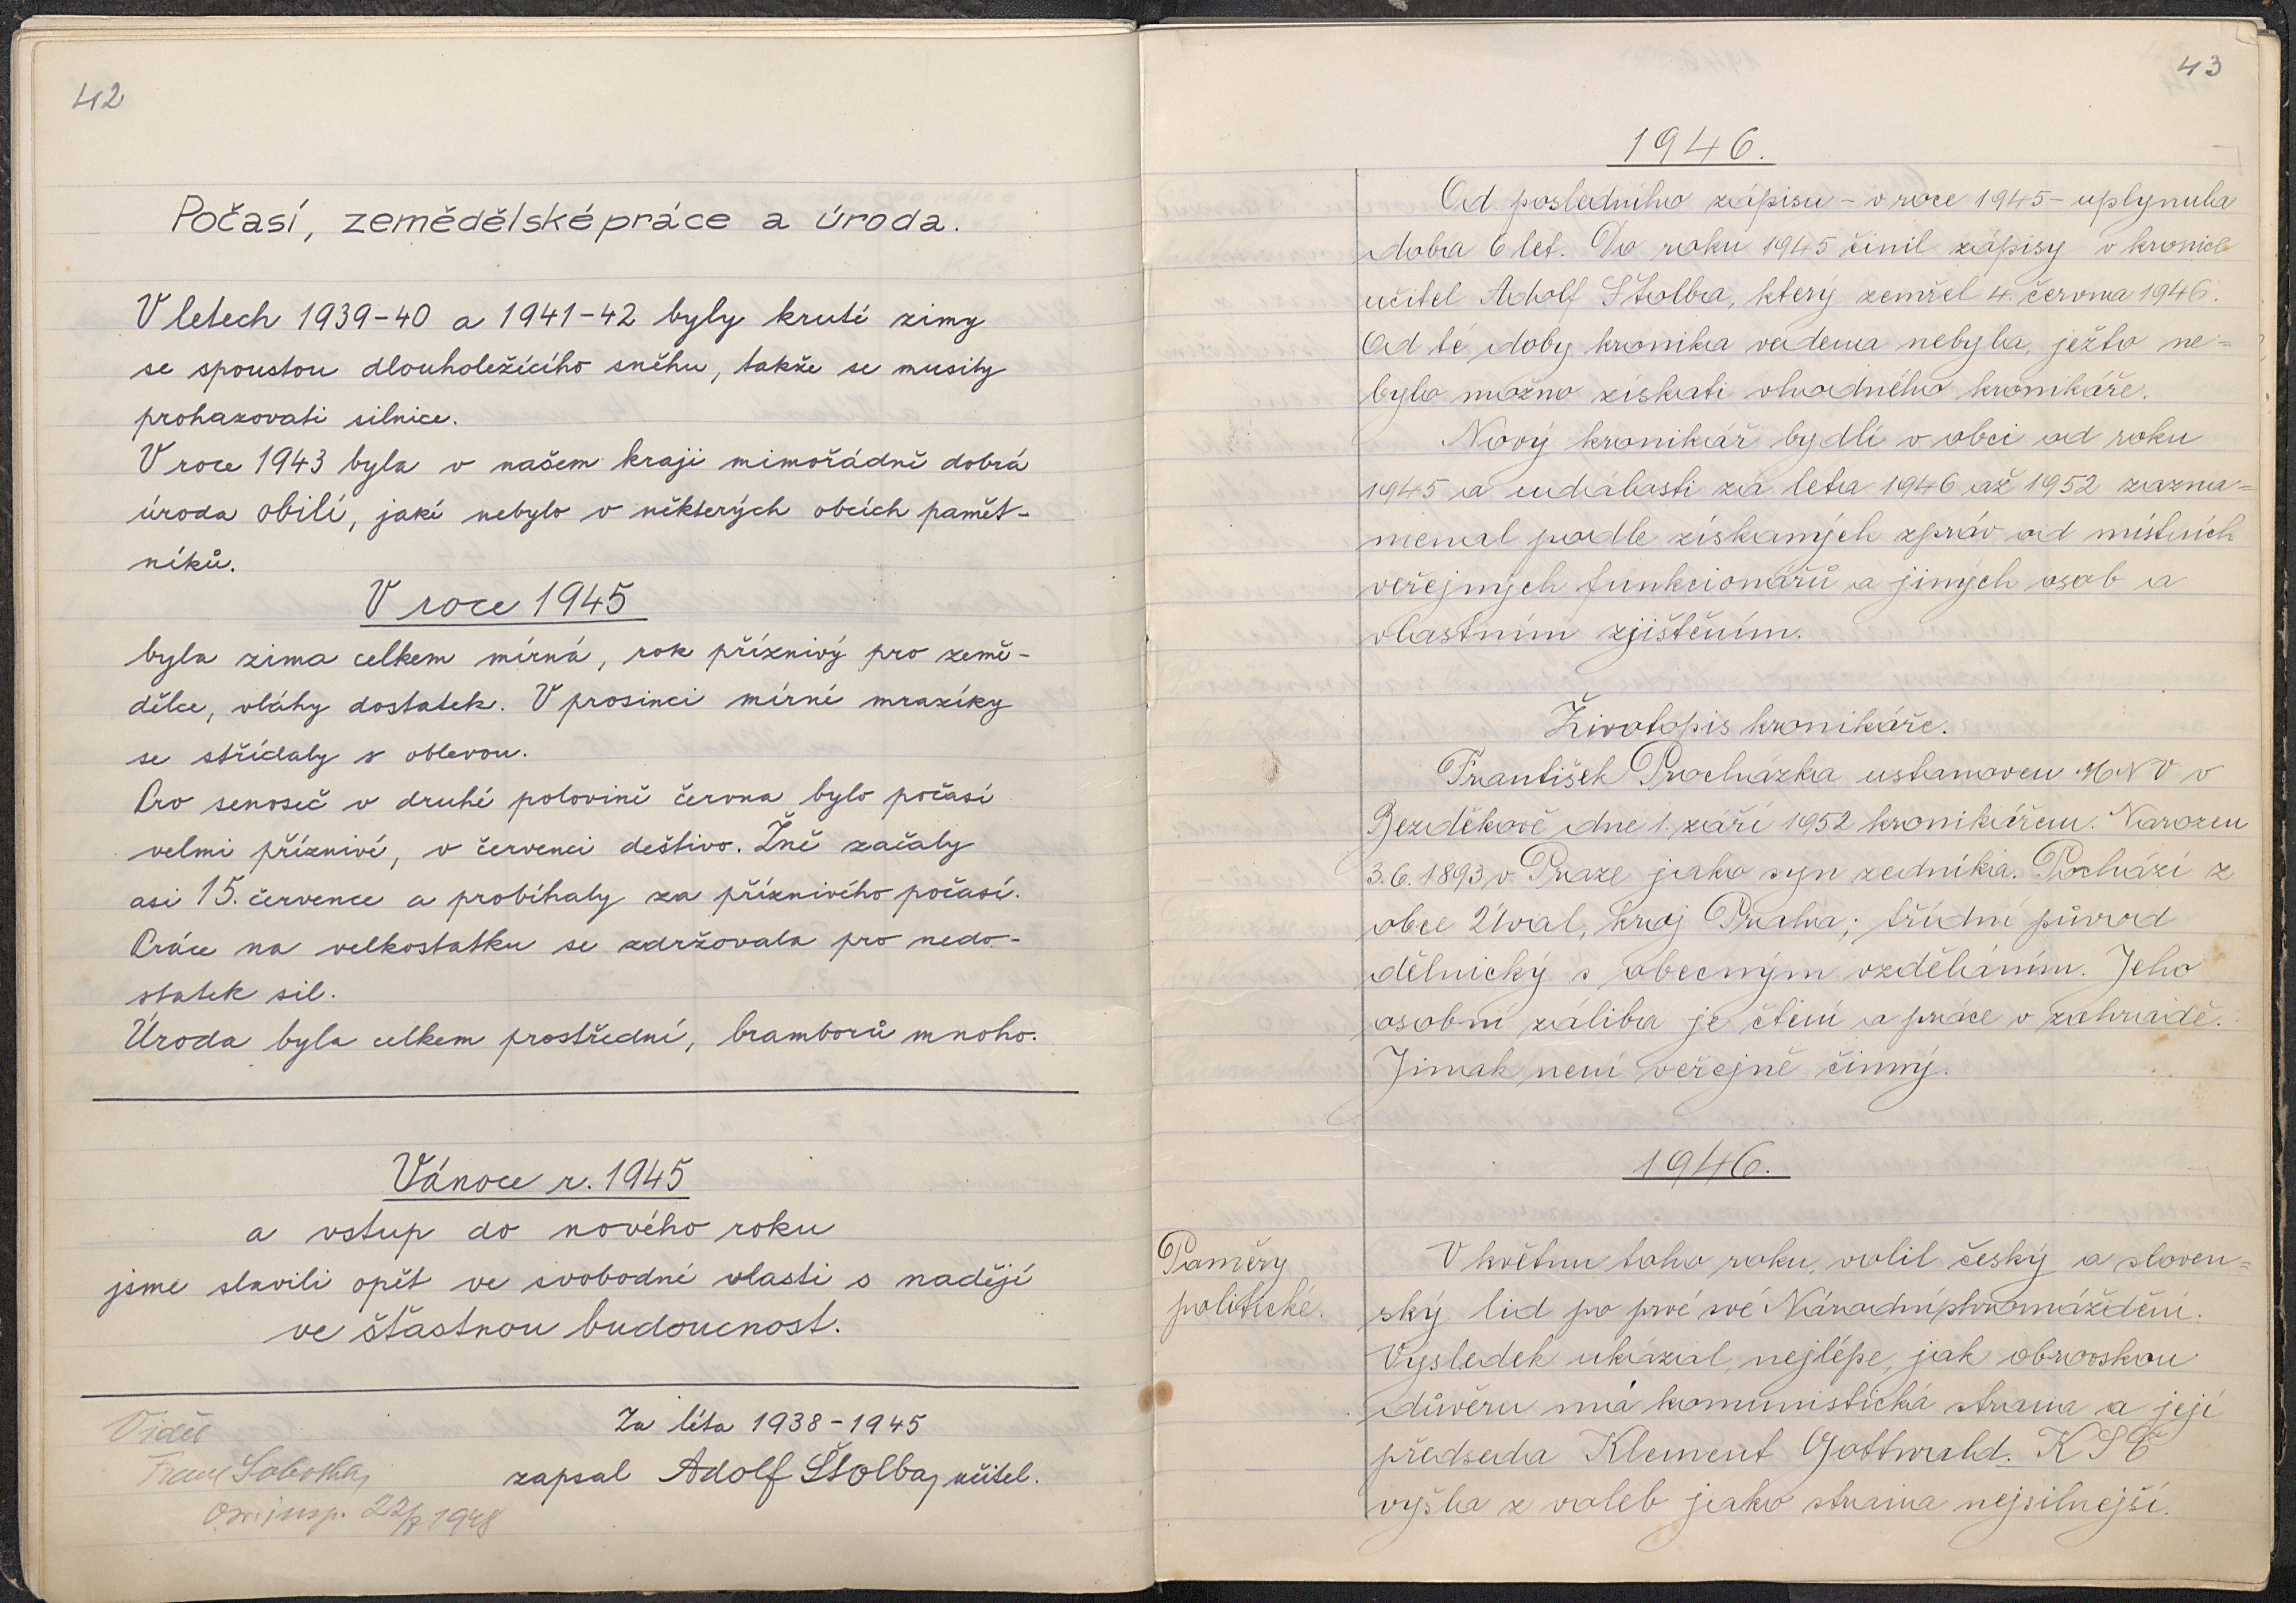 42
Počasí, zemědělské práce a úroda.
V letech 1939-40 a 1941-42 byly kruté zimy
se spoustou dlouholežícího sněhu, takže se musily
prohazovati silnice.
V roce 1943 byla v našem kraji mimořádně dobrá
úroda obilí, jaké nebylo v některých obcích pamět-
níků.
V roce 1945
byla zima celkem mírná, rok příznivý pro země-
dělce, vláhy dostatek. V prosinci mírné mrazíky
se střídaly s oblevou.
Pro senoseč v druhé polovině června bylo počasí
velmi příznivé, v červenci deštivo. Žně začaly
asi 15. července a probíhaly za příznivého počasí.
Práce na velkostatku se zdržovala pro nedo-
statek sil.
Úroda byla celkem prostřední, bramborů mnoho.
Vánoce r. 1945
a vstup do nového roku
jsme slavili opět ve svobodné vlasti s nadějí
ve šťastnou budoucnost.
Za léta 1938-1945
zapsal Adolf Štolba, učitel.
Viděl
insp. 22/7 1948
43
1946.
Od posledního zápisu - v roce 1945 - uplynula
doba 6 let. Do roku 1945 činil zápisy v kronice
učitel Adolf Štolba, který zemřel 4. června 1946.
Od té doby kronika vedena nebyla, ježto ne=
bylo možno získati vhodného kronikáře.
Nový kronikář bydlí v obci od roku
1945 a události za léta 1946 až 1952 zazna=
menal podle získaných zpráv od místních
veřejných funkcionářů a jiných osob a
vlastním zjištěním.
Životopis kronikáře.
František Procházka ustanoven MNV v
Bezděkově dne 1. září 1952 kronikářem. Narozen
3.6.1893 v Praze jako syn zedníka. Pochází z
obce Úval, kraj Praha; třídní původ
dělnický s obecným vzděláním. Jeho
osobní záliba je čtení a práce v zahradě.
Jinak není veřejně činný.
1946.
Poměry
politické.
V květnu toho roku, volil český a sloven=
ský lid po prvé své Národní shromáždění.
Výsledek ukázal, nejlépe, jak obrovskou
důvěru má komunistická strana a její
předseda Klement Gottwald. KSČ
vyšla z voleb jako strana nejsilnejší.